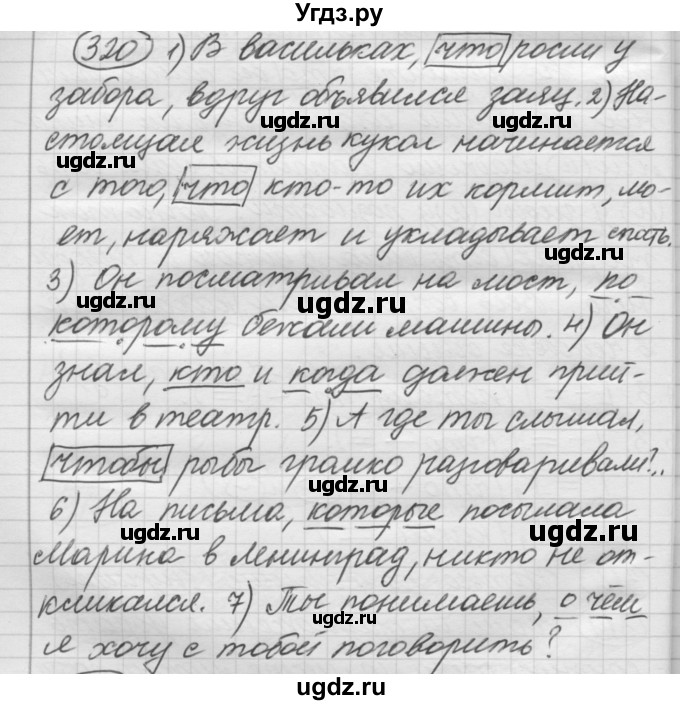 Угдз.ру
320 1) В васильках, что росли у
забора, вдруг объявился заяц. 2) На-
стоящая жизнь кукол начинается
ugdz.ru ugdz.ru
с того, что кто-то их кормит, мо-
ет, наряжает и укладывает спать.
ugdz.ru
3) Он посматривал на мост, по
ugdz.ru ugdz.ru
которому бежали машины. 4) Он
знал, кто и когда должен прий-
ugdz.ru ugdz.ru
ти в театр. 5) А где ты слышал,
чтобы рыбы громко разговаривали?..
ugdz.ru
6) На письма, которые посылала
ugdz.ru ugdz.ru
Марина в Ленинград, никто не от-
кликался. 7) Ты понимаешь, о чём
ugdz.ru ugdz.ru
я хочу с тобой поговорить?
ugdz.ru